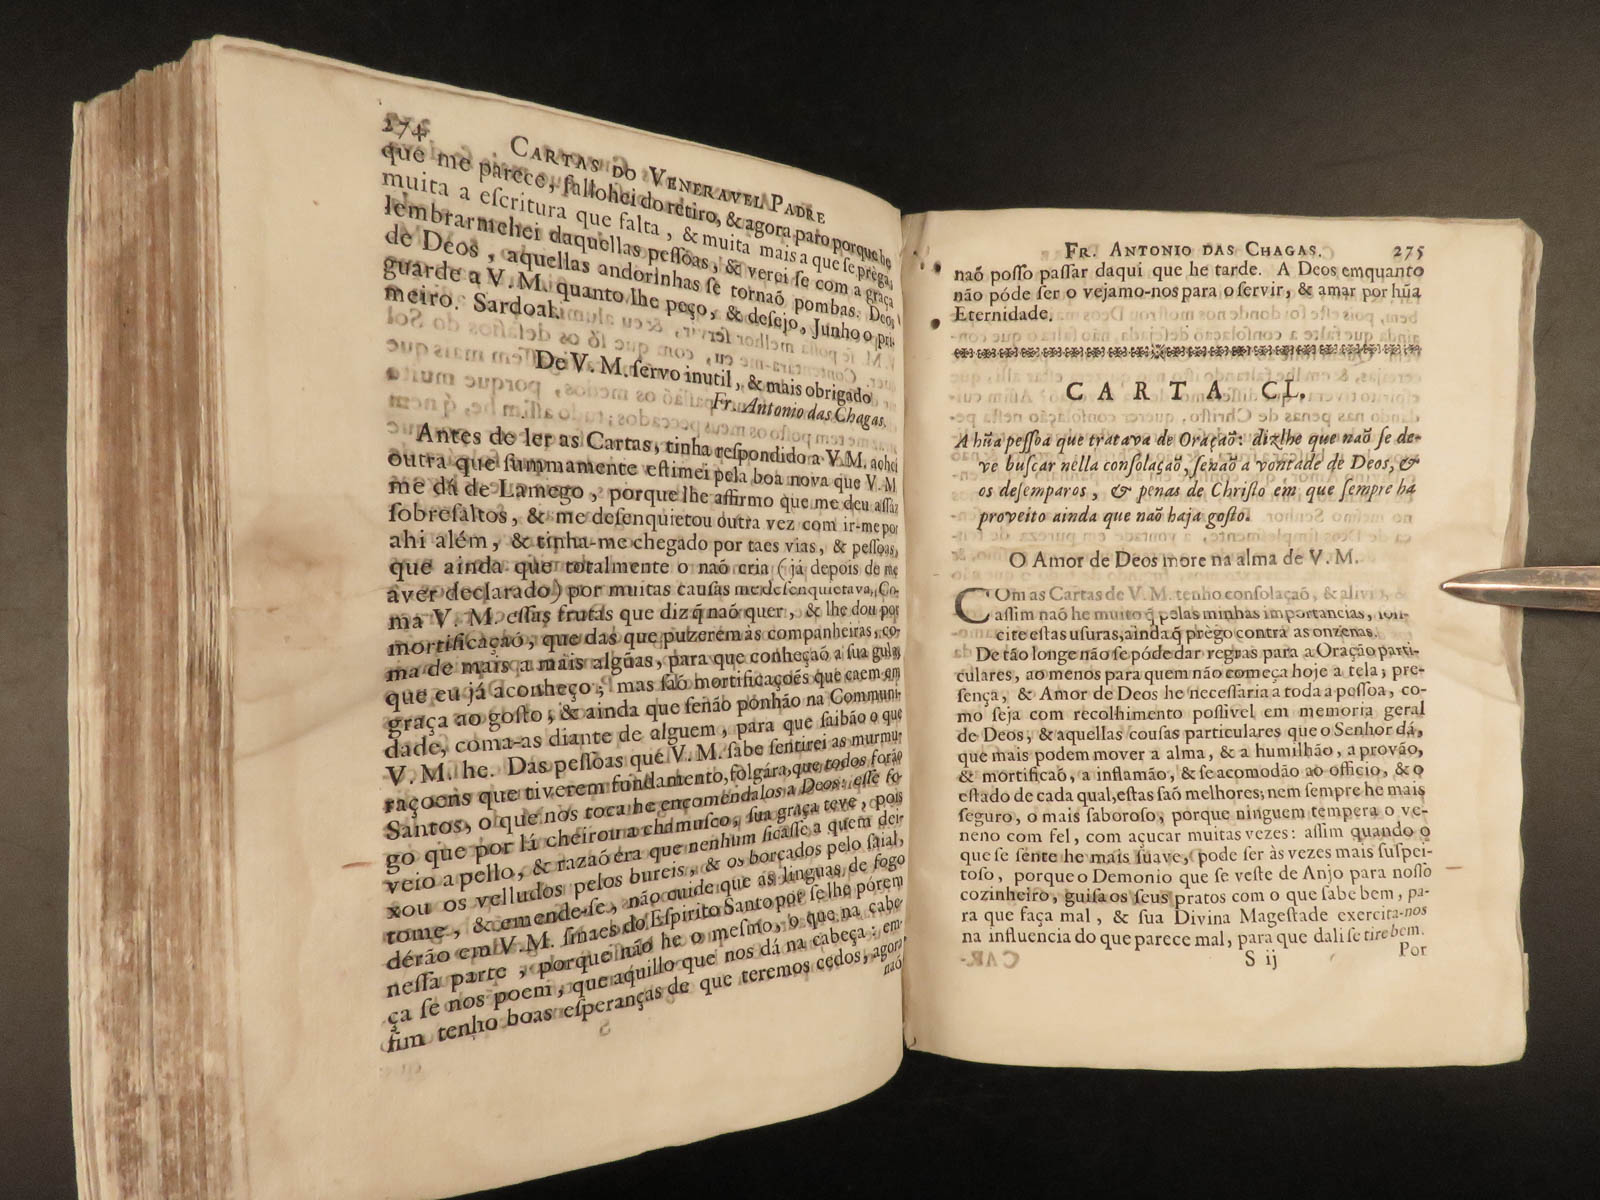 274
CARTAS DO VENERAVEL PADRE
que me parece, fallohei do retiro, & agora paro porque he
muita a eſcritura que falta, & muita mais a que ſe préga,
lembrarmehei daquellas peſſoas, & verei ſe com a graça
de Deos, aquellas andorinhas ſe tornaõ pombas. Deos
guarde a V. M. quanto lhe peço, & deſejo, Junho o pri-
meiro. Sardoal.
De V. M. ſervo inutil, & mais obrigado
Fr. Antonio das Chagas.
Antes de ler as Cartas, tinha reſpondido a V. M. achei
outra que ſummamente eſtimei pela boa nova que V. M
me dá de Lamego, porque lhe affirmo que me deu aſſaz
ſobreſaltos, & me deſenquietou outra vez com ir-me por
ahi além, & tinha-me chegado por taes vias, & peſſoas,
que ainda que totalmente o naõ cria (já depois de me
aver declarado) por muitas cauſas me deſenquietava. Co-
ma V. M. eſſas frutas que diz q̃ naõ quer, & lhe dou por
mortificaçaõ, que das que puzerem às companheiras, co-
ma de mais a mais algũas, para que conheçaõ a ſua gula,
que eu já aconheço; mas ſaõ mortificaçoẽs que caem em
graça ao goſto, & ainda que ſenão ponhão na Communi-
dade, coma-as diante de alguem, para que ſaibão o que
V. M. he. Das peſſoas que V. M. ſabe ſentirei as murmu-
raçoens que tiverem fundamento, folgára, que todos forão
Santos, o que nos toca he encomendalos a Deos: eſſe fo-
go que por lá cheirou a chamuſco, ſua graça teve, pois
veio a pello, & razaõ éra que nenhum ficaſſe a quem dei-
xou os velludos pelos bureis, & os borçados pelo ſaial,
tome, & emende-ſe, não cuide que as linguas de fogo
dérão em V. M. ſinaes do Eſpirito Santo por ſe lhe pórem
neſſa parte, porque não he o meſmo, o que na cabe-
ça ſe nos poem, que aquillo que nos dá na cabeça: em-
fim tenho boas eſperanças de que teremos cedos, agora
naõ
FR. ANTONIO DAS CHAGAS. 275
naõ poſſo paſſar daqui que he tarde. A Deos emquanto
não póde ſer o vejamo-nos para o ſervir, & amar por hũa
Eternidade.
CARTA CL.
A hũa peſſoa que tratava de Oraçaõ: dizlhe que naõ ſe de-
ve buſcar nella conſolaçaõ, ſenaõ a vontade de Deos, &
os deſemparos, & penas de Chriſto em que ſempre ha
proveito ainda que naõ haja goſto.
O Amor de Deos more na alma de V. M.
COm as Cartas de V. M. tenho conſolaçaõ, & alivio, &
aſſim naõ he muito q̃ pelas minhas importancias, ſoli-
cite eſtas uſuras, ainda q̃ prègo contra as onzenas.
De tão longe não ſe póde dar regras para a Oração parti-
culares, ao menos para quem não começa hoje a tela; pre-
ſença, & Amor de Deos he neceſſaria a toda a peſſoa, co-
mo ſeja com recolhimento poſſivel em memoria geral
de Deos, & aquellas couſas particulares que o Senhor dá,
que mais podem mover a alma, & a humilhão, a provão,
& mortificaõ, a inflamão, & ſe acomodão ao officio, & o
eſtado de cada qual, eſtas ſaõ melhores; nem ſempre he mais
ſeguro, o mais ſaboroſo, porque ninguem tempera o ve-
neno com fel, com açucar muitas vezes: aſſim quando o
que ſe ſente he mais ſuave, pode ſer às vezes mais ſuſpei-
toſo, porque o Demonio que ſe veſte de Anjo para noſſo
cozinheiro, guiſa os ſeus pratos com o que ſabe bem, pa-
ra que faça mal, & ſua Divina Mageſtade exercita-nos
na influencia do que parece mal, para que dali ſe tire bem.
S ij
Por